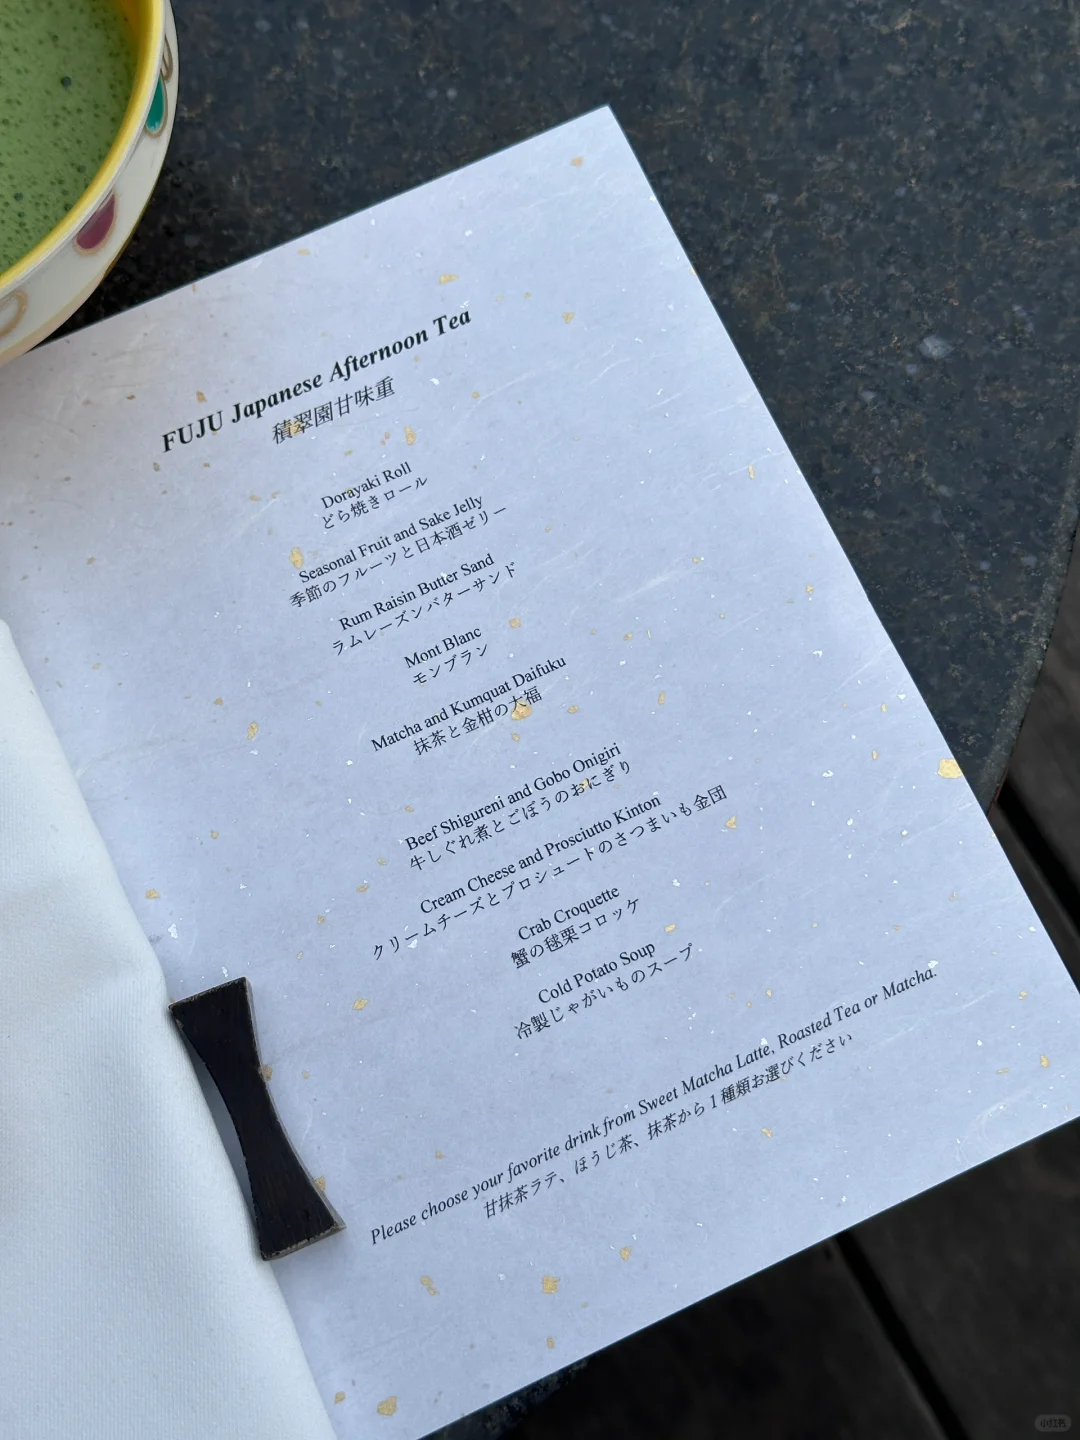 FUJU Japanese Afternoon Tea
積翠園甘味重
Dorayaki Roll
どら焼きロール
Seasonal Fruit and Sake Jelly
季節のフルーツと日本酒ゼリー
Rum Raisin Butter Sand
ラムレーズンバターサンド
Mont Blanc
モンブラン
Matcha and Kumquat Daifuku
抹茶と金柑の大福
Beef Shigureni and Gobo Onigiri
牛しぐれ煮とごぼうのおにぎり
Cream Cheese and Prosciutto Kinton
クリームチーズとプロシュートのさつまいも金団
Crab Croquette
蟹の毬栗コロッケ
Cold Potato Soup
冷製じゃがいものスープ
Please choose your favorite drink from Sweet Matcha Latte, Roasted Tea or Matcha.
甘抹茶ラテ、ほうじ茶、抹茶から1種類お選びください
小红书